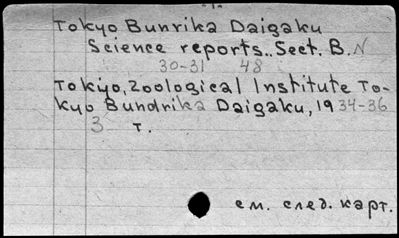 Tokyo Bunrika Daigaku
Science reports.. Sect. B. N
30-31 48
Tokyo, Zoological Institute To-
kyo Bundrika Daigaku, 1934-36
3 т.
см. след. карт.